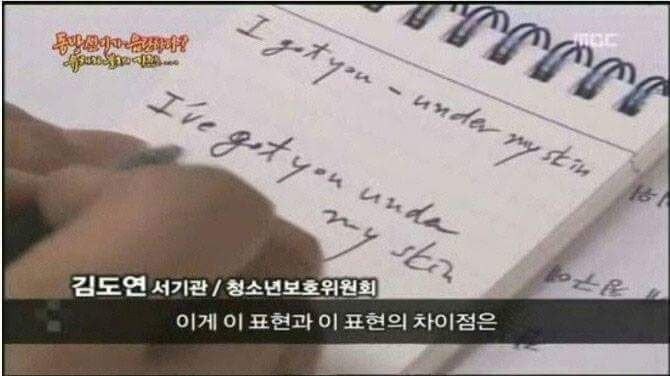 동방신기가 음란하다?
MBC
I got you - under my skin
I've got you under
my skin
김도연 서기관 / 청소년보호위원회
이게 이 표현과 이 표현의 차이점은